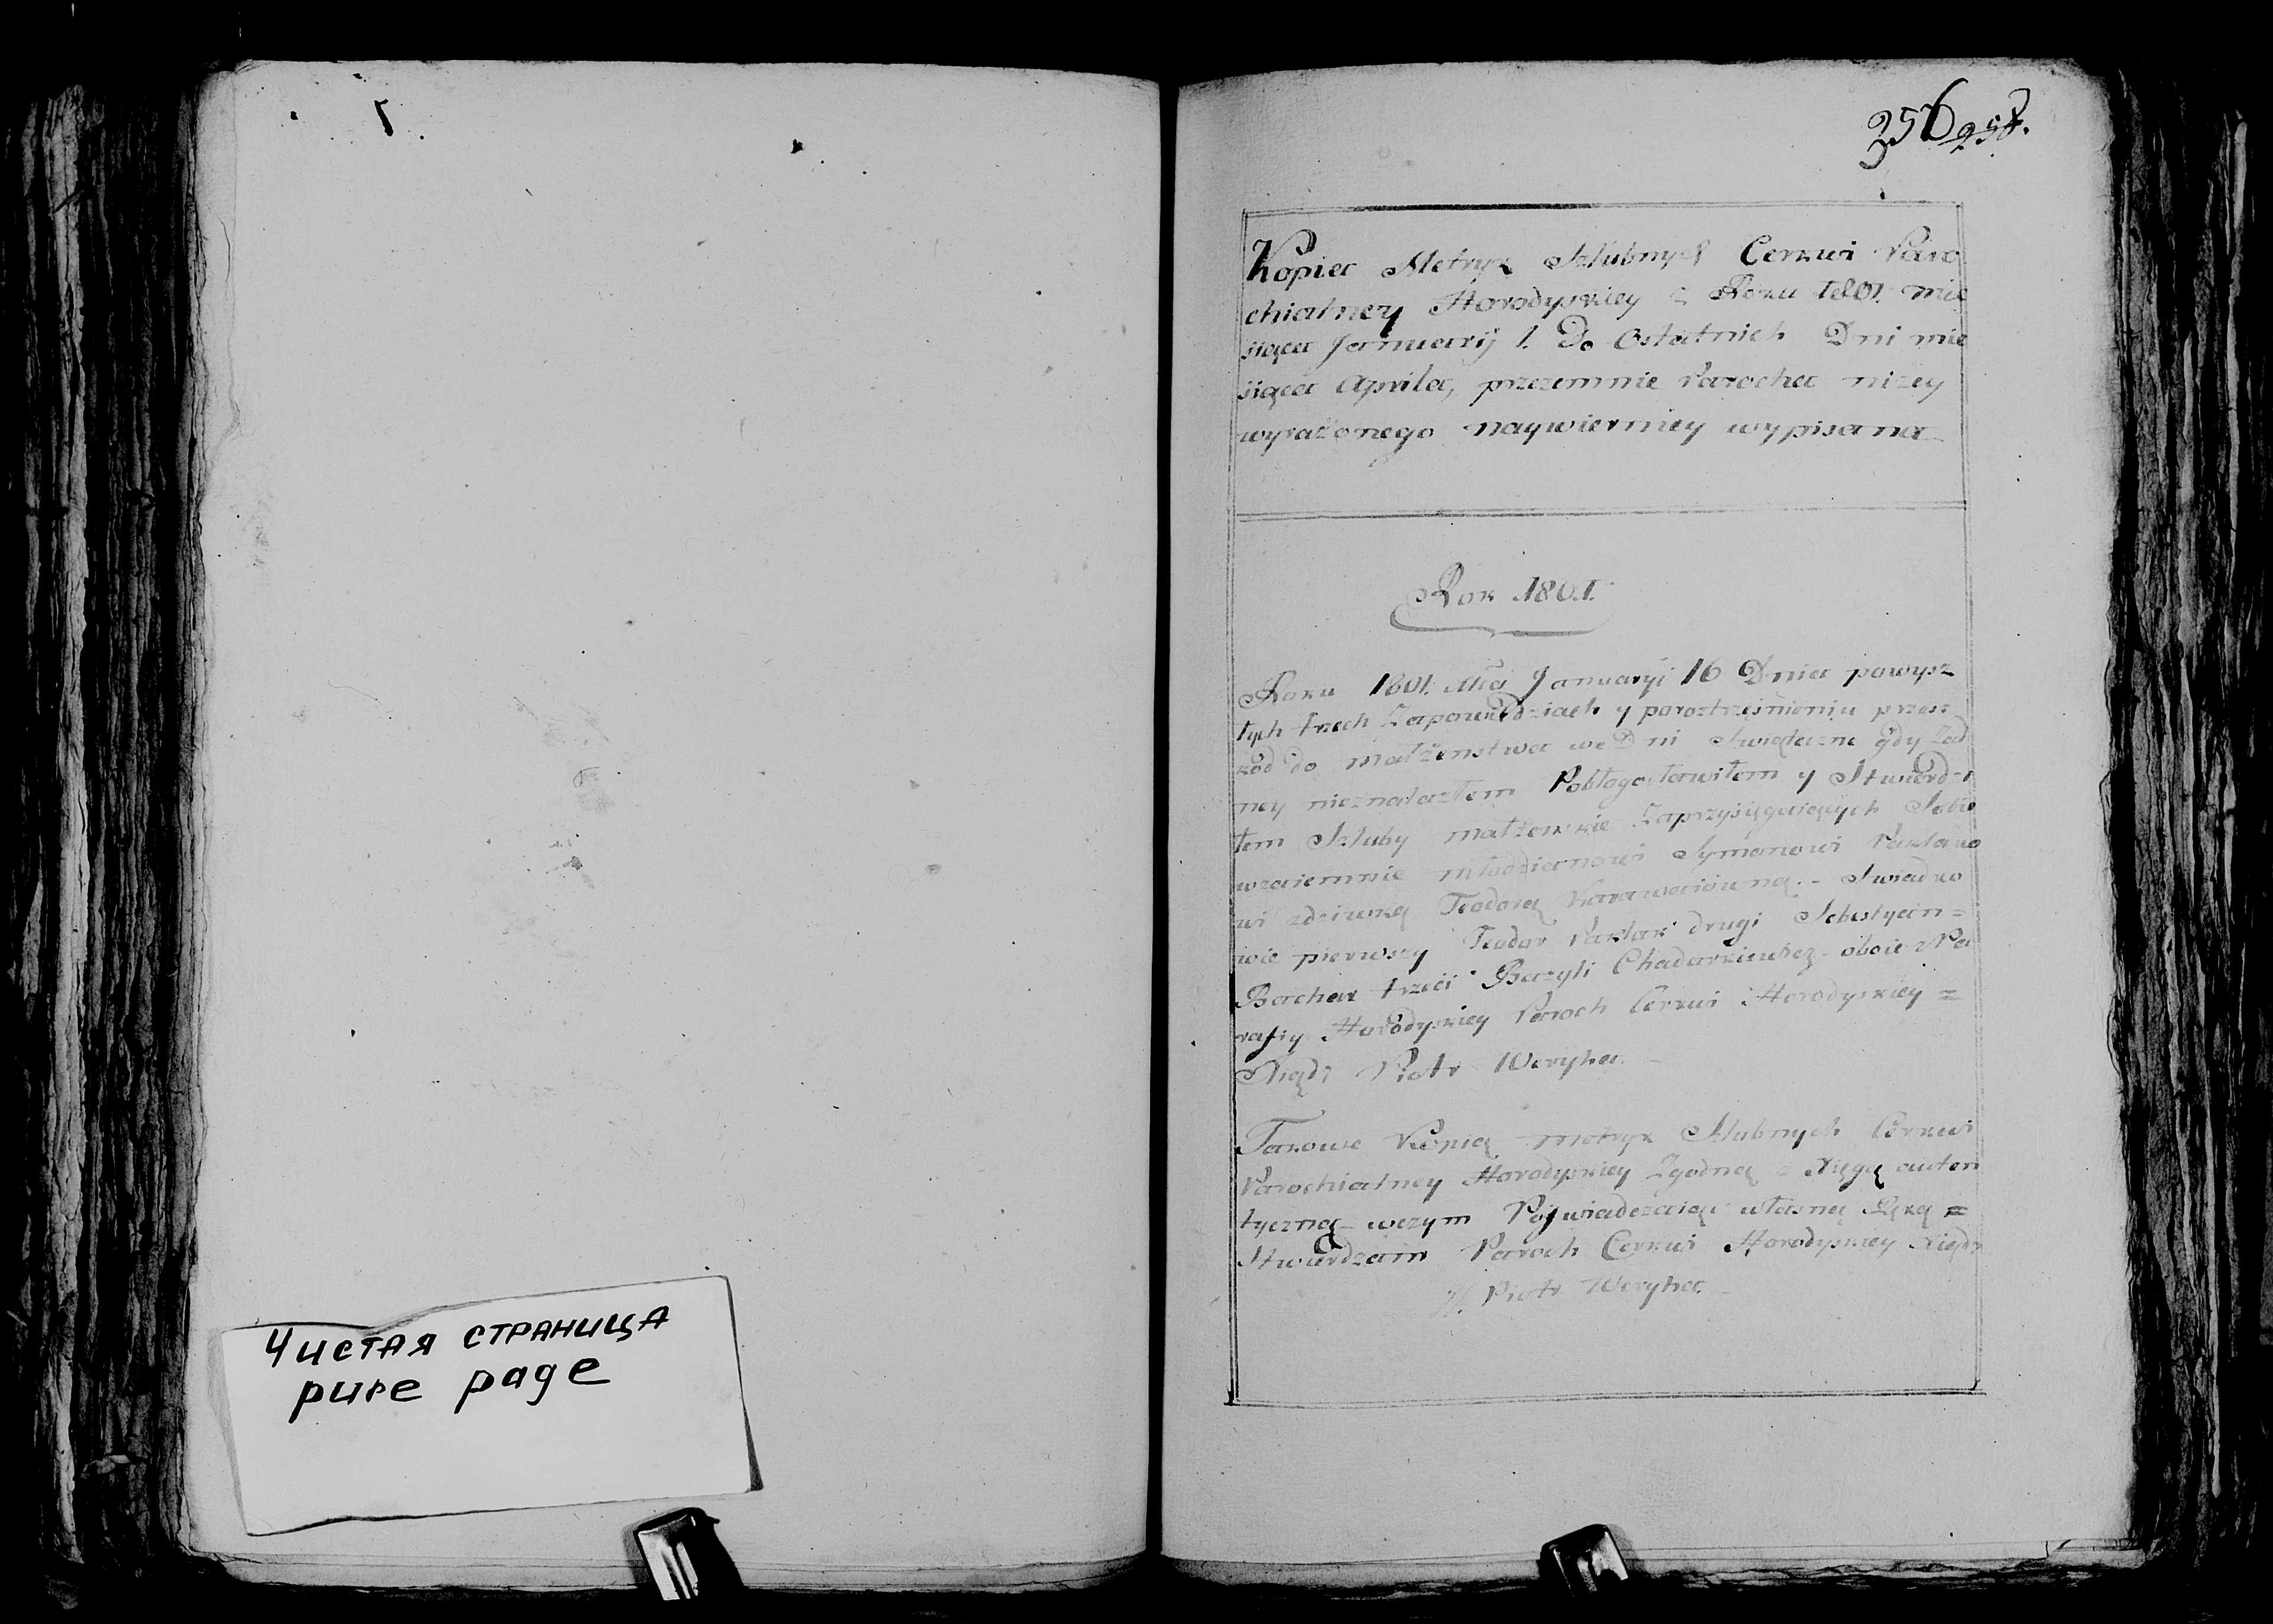 Чистая страница
pure page
256 257.
Kopia Metryk Szlubnych Cerkwi Paro
chialney Horodyskiey z Roku 1801. mie
siąca Januarij 1. Do Ostatnich Dni mie
siąca Aprila, przezemnie Parocha niżey
wyrażonego naywierniey wypisana
Rok 1801.
Roku 1801. Mca Januaryi 16 Dnia powysz
łych trzech Zapowiedziach y poroztrząśnieniu przesz
kód do małżenstwa we Dni Swiąteczne gdy żad
ney nieznalazłem Pobłogosławiłem y Stwierdzi
łem Szluby małżenskie Zaprzysięgaiących Sobie
wzaiemnie młodzianowi Symonowi Paklako
wi zdziewką Teodorą Karawaiówną. - Swiadko
wie pierwszy Teodor Paklak drugi Sebestyan =
Bachar trzeci Bazyli Chadarkiewicz - oboie z Pa
rafiy Horodyskiey Paroch Cerkwi Horodyskiey =
Xiądz Piotr Weryha. -
Takowe Kopią metryk Szlubnych Cerkwi
Parochialney Horodyskiey Zgodną z Xięgą auten
tyczną wczym Poświadczaiąc własną Ręką =
Stwierdzam Paroch Cerkwi Horodyskiey Xiądz
X. Piotr Weryha